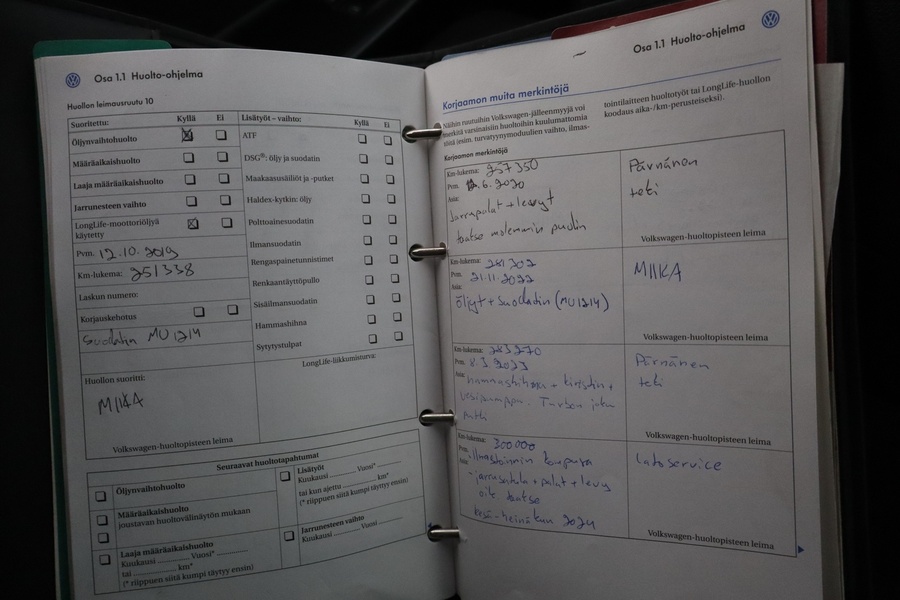 Osa 1.1 Huolto-ohjelma
Huollon leimausruutu 10
Suoritettu: Kyllä Ei
Öljynvaihtohuolto
Määräaikaishuolto
Laaja määräaikaishuolto
Jarrunesteen vaihto
LongLife-moottoriöljyä
käytetty
Pvm. 12.10.2019
Km-lukema: 251338
Laskun numero:
Korjauskehotus
Suodatin MU1214
Huollon suoritti:
MIIKA
Volkswagen-huoltopisteen leima
Lisätyöt – vaihto: Kyllä Ei
ATF
DSG®: öljy ja suodatin
Maakaasusäiliöt ja -putket
Haldex-kytkin: öljy
Polttoainesuodatin
Ilmansuodatin
Rengaspainetunnistimet
Renkaantäyttöpullo
Sisäilmansuodatin
Hammashihna
Sytytystulpat
LongLife-liikkumisturva:
Seuraavat huoltotapahtumat
Öljynvaihtohuolto
Määräaikaishuolto
joustavan huoltovälinäytön mukaan
Laaja määräaikaishuolto
Kuukausi Vuosi*
tai km*
(* riippuen siitä kumpi täytyy ensin)
Lisätyöt
Kuukausi Vuosi*
tai kun ajettu km*
(* riippuen siitä kumpi täytyy ensin)
Jarrunesteen vaihto
Kuukausi Vuosi
Osa 1.1 Huolto-ohjelma
Korjaamon muita merkintöjä
Näihin ruutuihin Volkswagen-jälleenmyyjä voi
merkitä varsinaisiin huoltoihin kuulumattomia
töitä (esim. turvatyynymoduulien vaihto, ilmas-
tointilaitteen huoltotyöt tai LongLife-huollon
koodaus aika-/km-perusteiseksi).
Korjaamon merkintöjä
Km-lukema: 257350
Pvm. 6.2020
Asia:
Jarrupalat + levyt
taakse molemmin puolin
Pärnänen
teki
Volkswagen-huoltopisteen leima
Km-lukema: 281302
Pvm. 21.11.2022
Asia:
Öljyt + suodatin (MU1214)
MIIKA
Volkswagen-huoltopisteen leima
Km-lukema: 283270
Pvm. 8.3.2023
Asia: hammashihna + kiristin +
vesipumppu. Turbon joku
putki
Pärnänen
teki
Volkswagen-huoltopisteen leima
Km-lukema: 300000
Pvm. -Ilmastoinnin kompura
Asia: -jarrusatula + palat + levy
oik taakse
kesä-heinäkuu 2024
Latoservice
Volkswagen-huoltopisteen leima